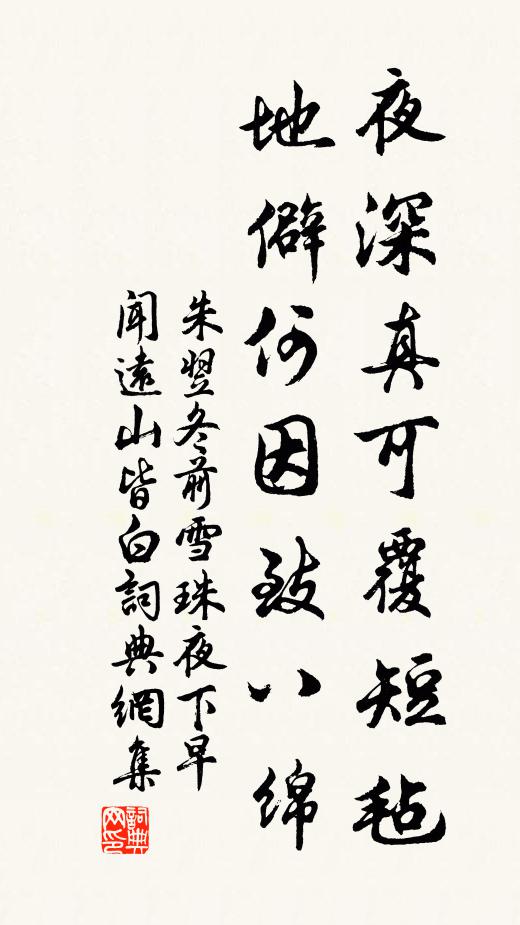 夜深真可覆短毡
地僻何因致八绵
朱翌冬前雪珠夜下早
闻遠山皆白詞典網集
詞典网印